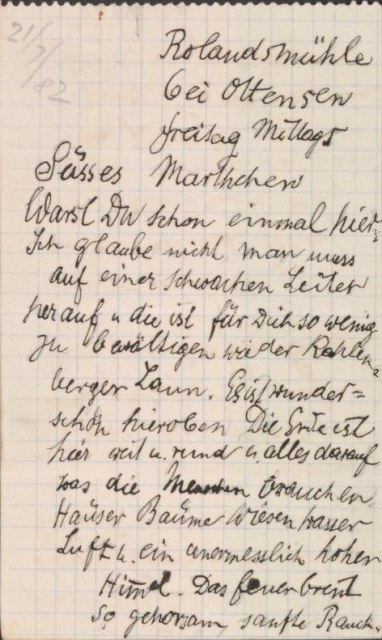 21/7/82
Rolandsmühle
bei Ottensen
Freitag Mittags
Süsses Marthchen
Warst Du schon einmal hier?
Ich glaube nicht man muss
auf einer schwachen Leiter
herauf u die ist für Dich so wenig
zu bewältigen wie der Kahlen=
berger Zaun. Es ist wunder=
schön hieroben Die Erde ist
hier weit u. rund u. alles darauf
was die Menschen brauchen
Häuser Bäume Wiesen Wasser
Luft u. ein unermesslich hoher
Himel. Das Feuer brent
so gehorsam, sanfte Rauch